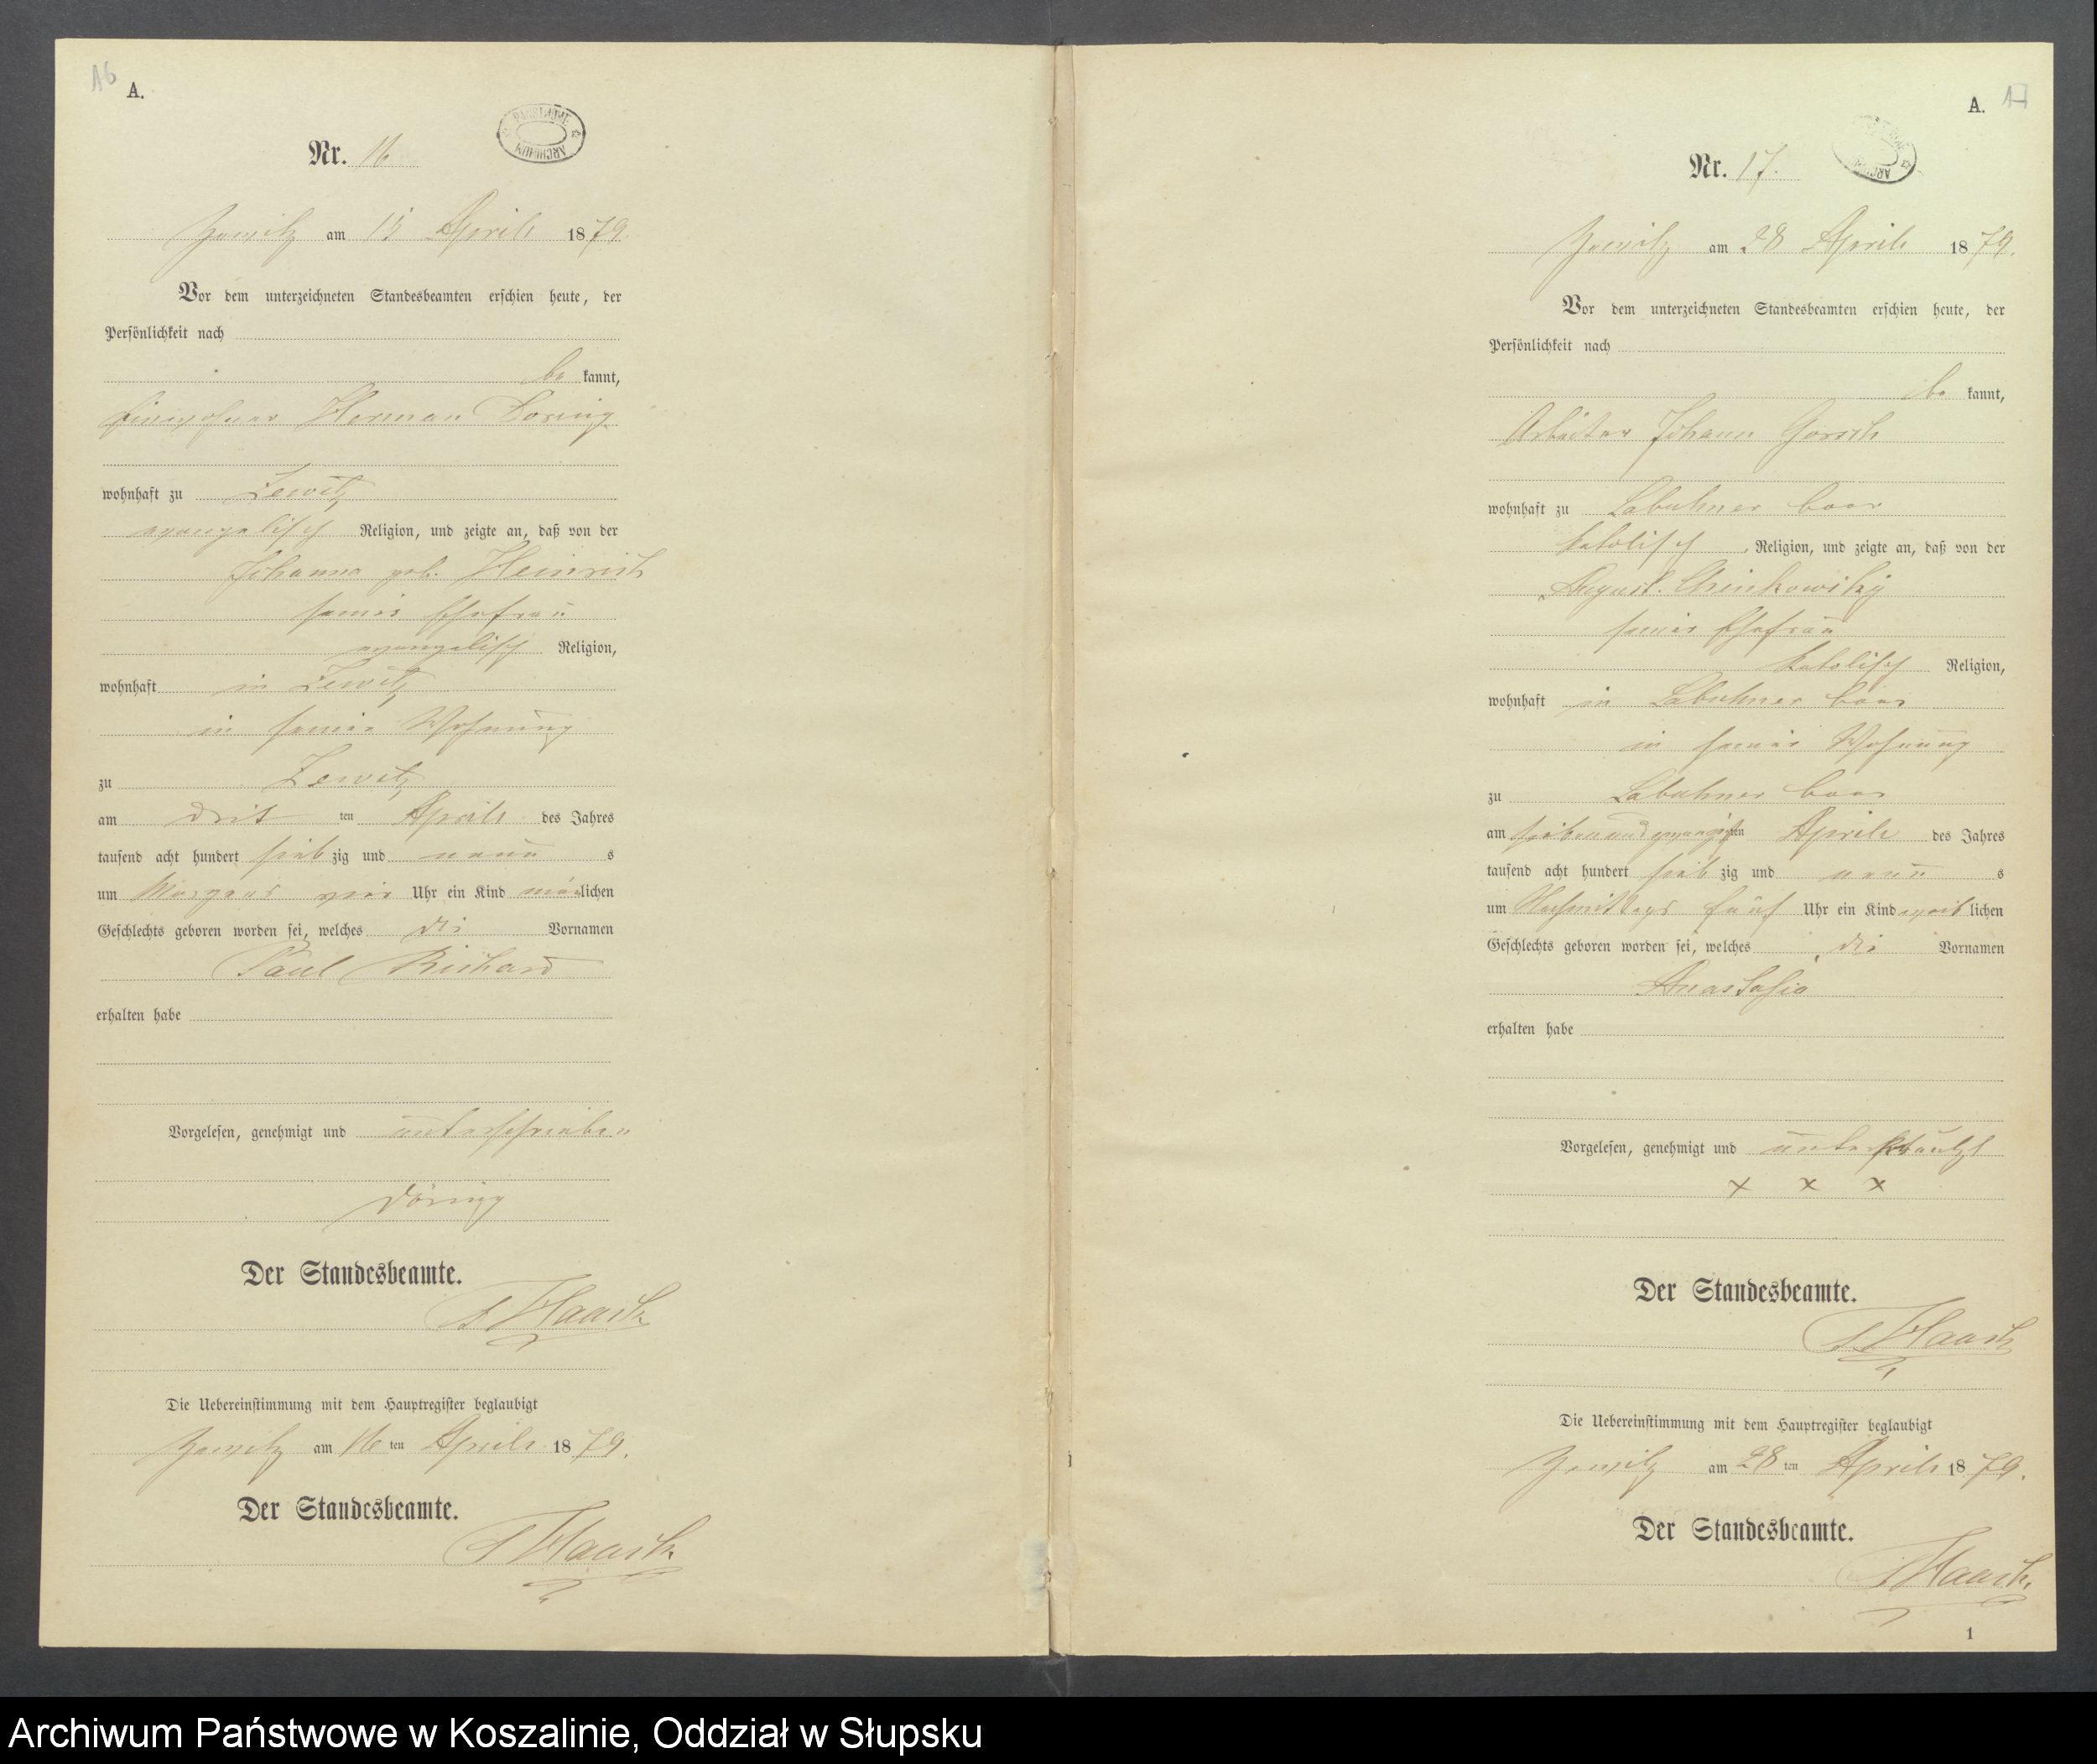 16
A.
Nr. 16
PAŃSTWOWE
ARCHIWUM
am 15 Aprils 1879.
Vor dem unterzeichneten Standesbeamten erschien heute, der
Persönlichkeit nach
be kannt,
Einwohner Herman Döring
wohnhaft zu Zewitz
evangelisch Religion, und zeigte an, daß von der
Johanna geb. Heinrich
seiner Ehefrau
evangelisch Religion,
wohnhaft in Zewitz
in seiner Wohnung
zu Zewitz
am drit ten Aprils des Jahres
tausend acht hundert sieb zig und neun s
um Morgens vier Uhr ein Kind männlichen
Geschlechts geboren worden sei, welches die Vornamen
Paul Richard
erhalten habe
Vorgelesen, genehmigt und unterschrieben
Döring
Der Standesbeamte.
Haack
Die Uebereinstimmung mit dem Hauptregister beglaubigt
am 16 ten Aprils 1879.
Der Standesbeamte.
Haack
A. 17
Nr. 17.
ARCHIWUM
am 28 Aprils 1879.
Vor dem unterzeichneten Standesbeamten erschien heute, der
Persönlichkeit nach
be kannt,
Arbeiter Johann
wohnhaft zu Labuhner
katolisch Religion, und zeigte an, daß von der
August.
seiner Ehefrau
katolisch Religion,
wohnhaft in Labuhner
in seiner Wohnung
zu Labuhner
am siebenundzwanzigsten Aprils des Jahres
tausend acht hundert sieb zig und neun s
um Nachmittags fünf Uhr ein Kind weiblichen
Geschlechts geboren worden sei, welches die Vornamen
Anastasia
erhalten habe
Vorgelesen, genehmigt und unterkreutzt
x x x
Der Standesbeamte.
Haack
Die Uebereinstimmung mit dem Hauptregister beglaubigt
am 28 ten Aprils 1879.
Der Standesbeamte.
Haack
1
Archiwum Państwowe w Koszalinie, Oddział w Słupsku